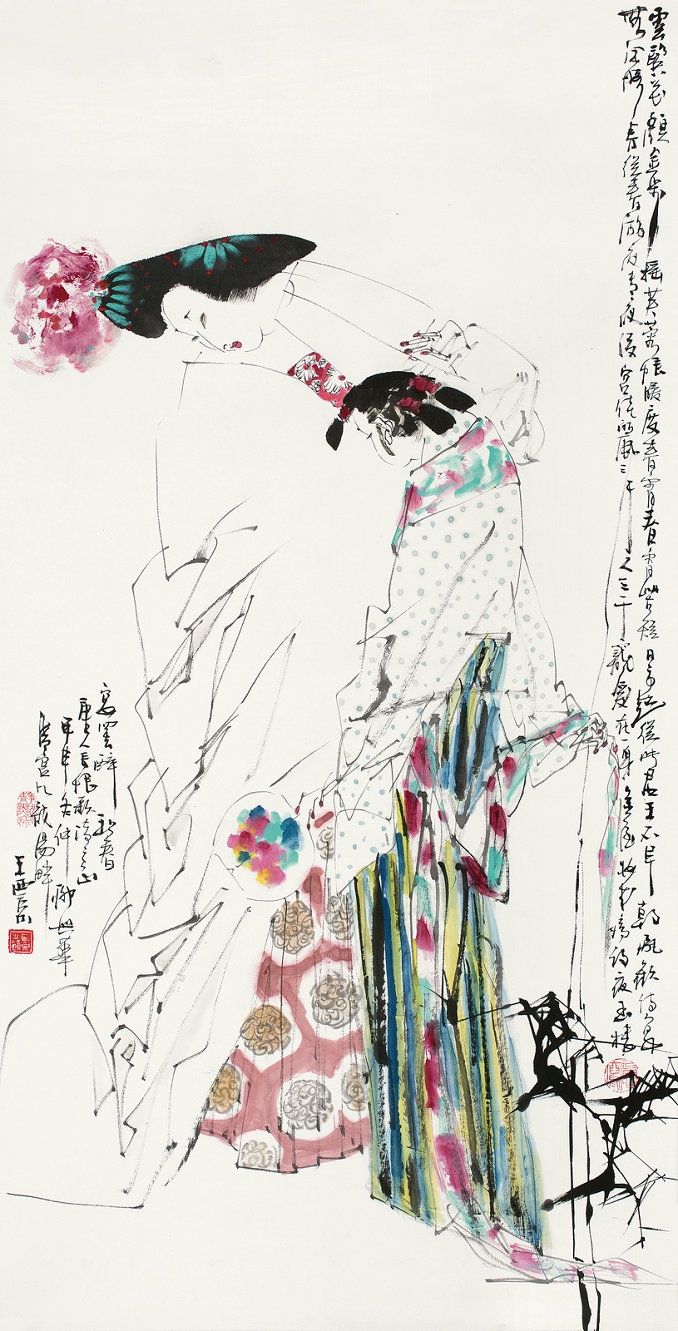 雲鬢花顏金步搖芙蓉帳暖度春宵春宵苦短日高起從此君王不早朝承歡侍宴
無閒暇春從春遊夜專夜後宮佳麗三千人三千寵愛在一身金屋妝成嬌侍夜玉樓
宴罷醉和春
唐人長恨歌詩之
甲申 仲 於華
清宮九龍湯畔
王西京